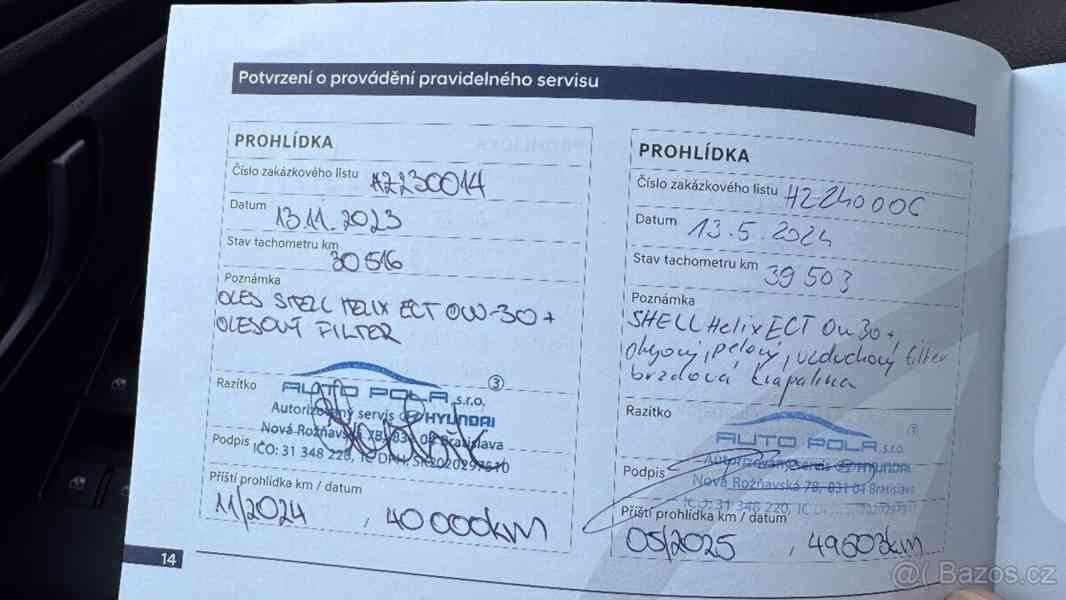 Potvrzení o provádění pravidelného servisu
PROHLÍDKA
Číslo zakázkového listu HZ230014
Datum 13.11.2023
Stav tachometru km 30516
Poznámka
OLEJ SHELL HELIX ECT 0W-30 +
OLEJOVÝ FILTER
Razítko
③
AUTO POLA s.r.o.
Autorizovaný servis HYUNDAI
Nová Rožňavská 78, 831 04 Bratislava
Podpis
IČO: 31 348 220, IČ DPH: SK2020297510
Příští prohlídka km / datum
11/2024 , 40 000km
PROHLÍDKA
Číslo zakázkového listu HZ24000C
Datum 13.5.2024
Stav tachometru km 39 503
Poznámka
SHELL Helix ECT 0w30 +
olejový, pelový, vzduchový filter
brzdová kvapalina
Razítko
AUTO POLA s.r.o.
Autorizovaný servis HYUNDAI
Podpis
Nová Rožňavská 78, 831 04 Bratislava
IČO: 31 348 220, IČ DPH:
Příští prohlídka km / datum
05/2025 , 49503km
14
@ Bazos.cz